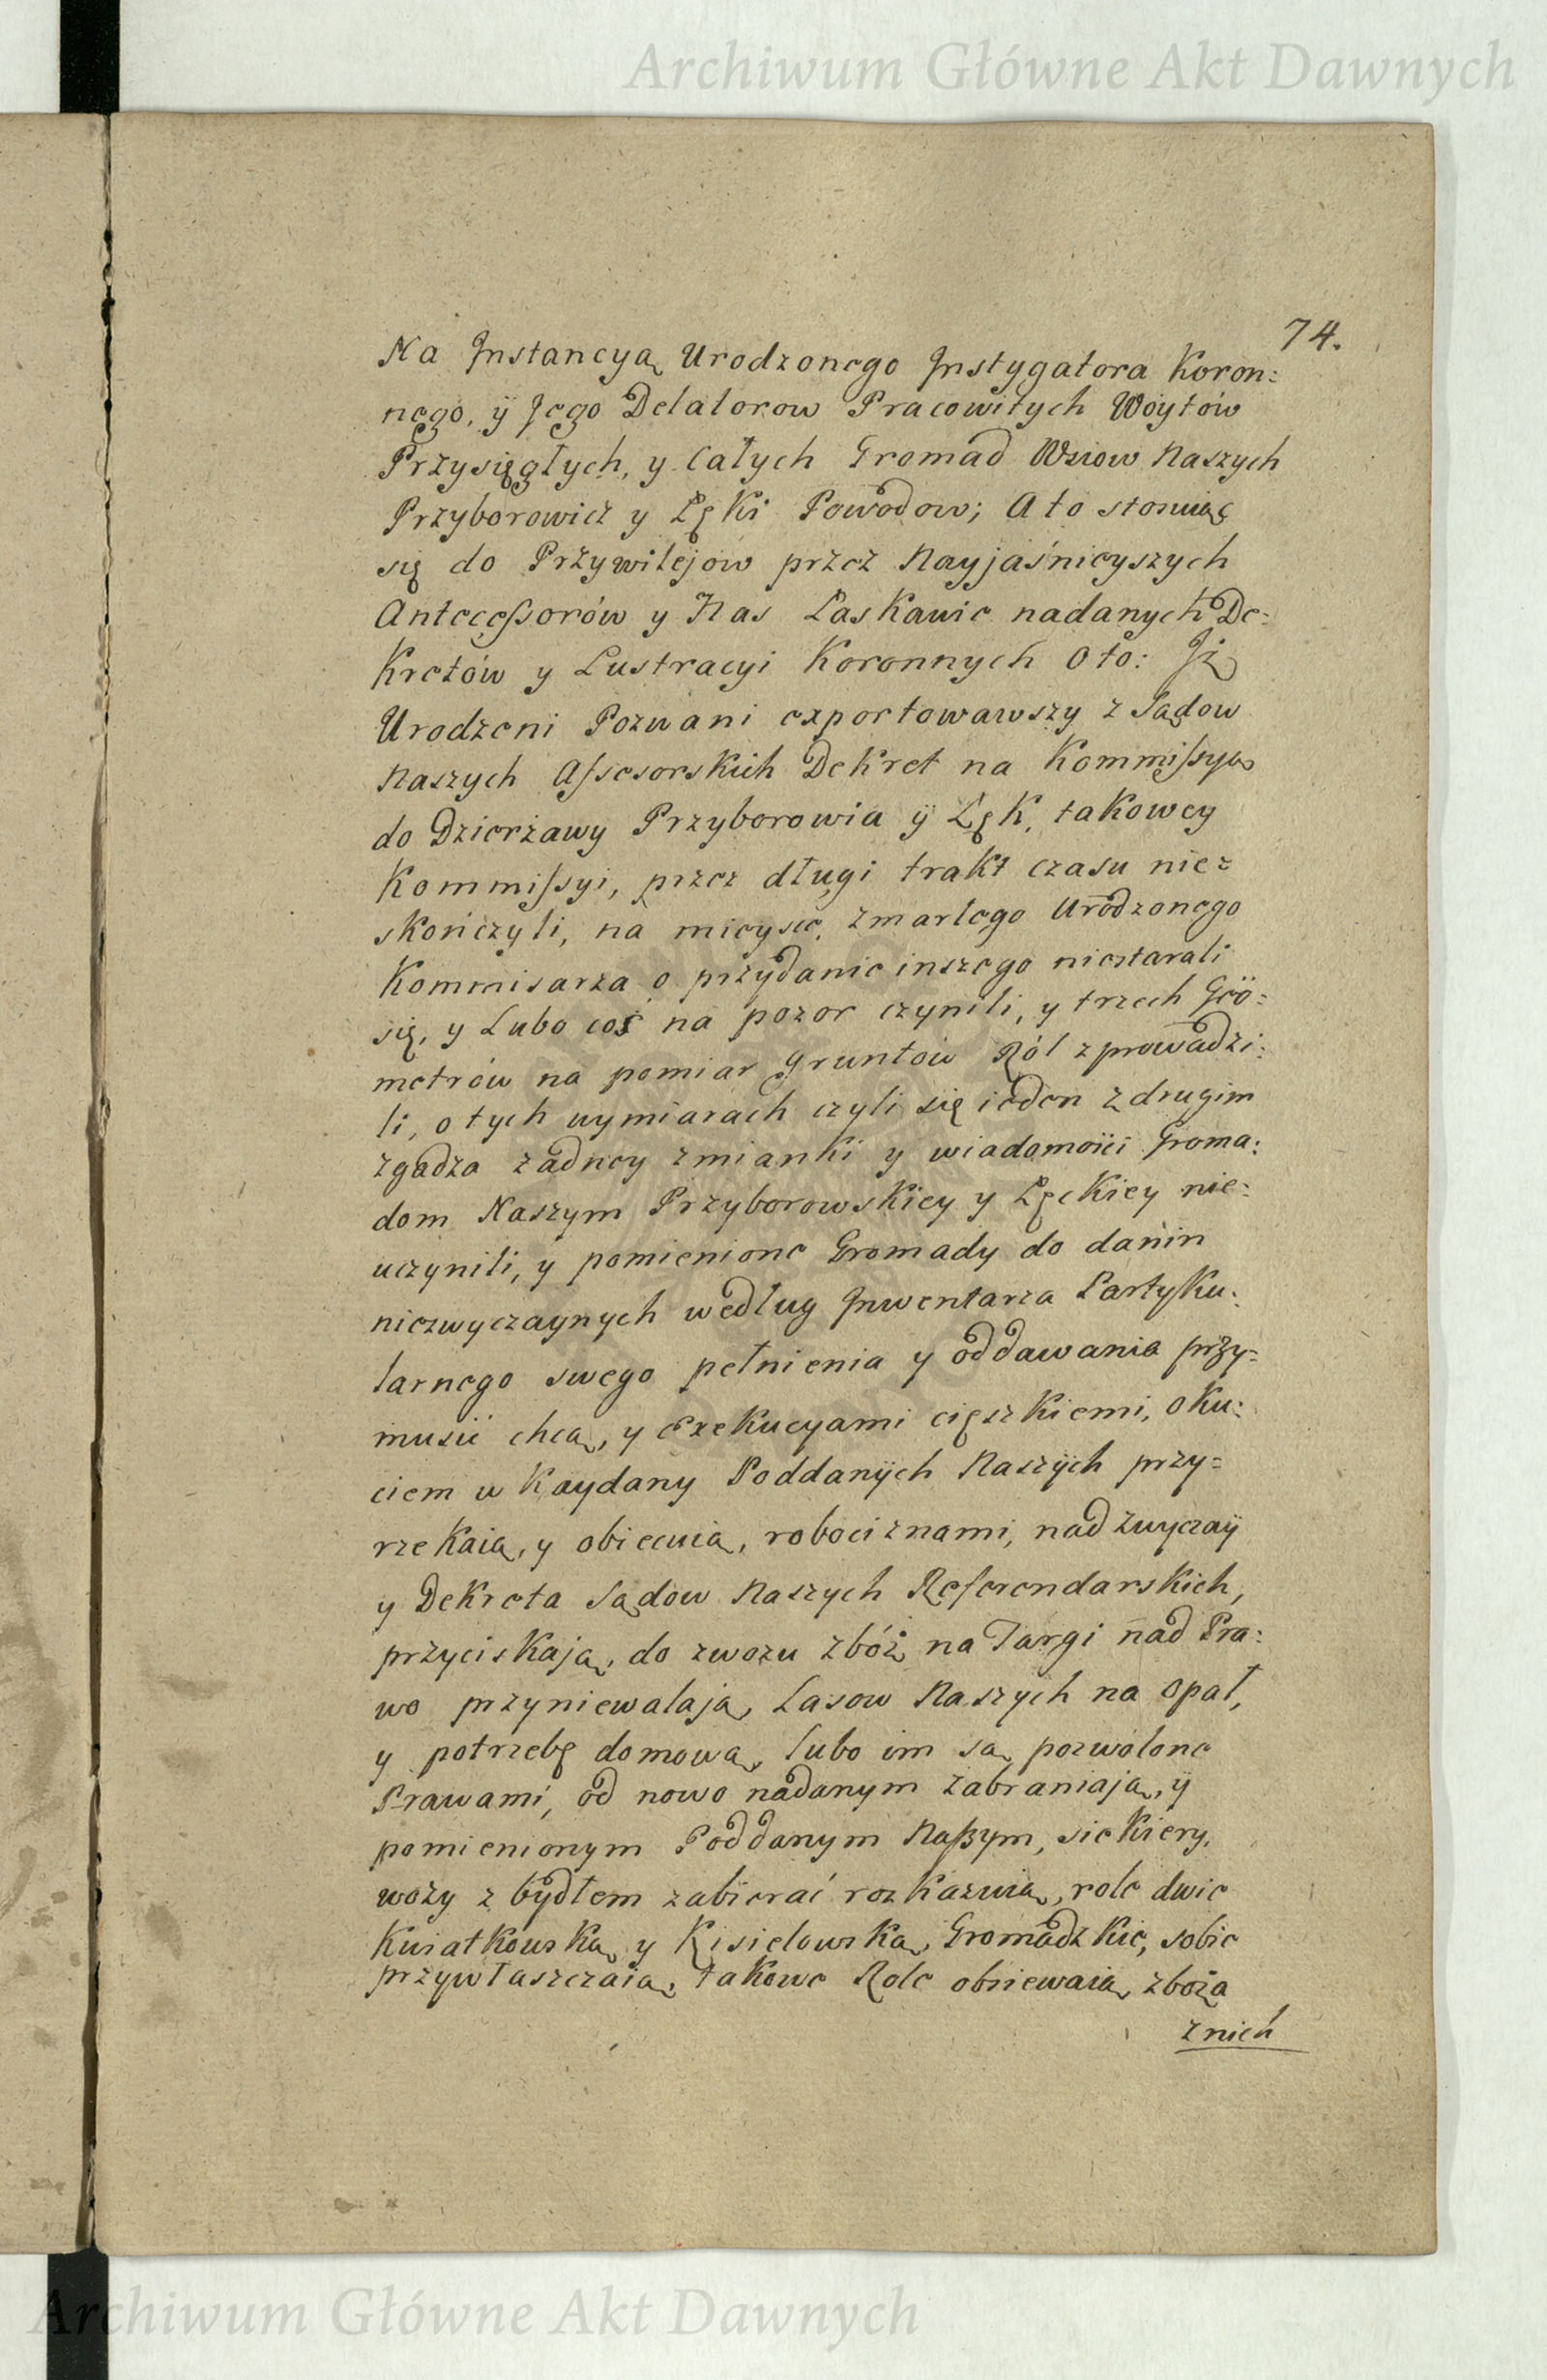 Archiwum Główne Akt Dawnych
74.
Na Jnstancyą Urodzonego Jnstygatora Koron:
nego, ÿ Jego Delatorow Pracowitych Woytów
Przysięgłych, y Całych Gromad Wsiow Naszych
Przyborowicz y Łęki Powodow; A to stosuiąc
się do Przywilejow przez Nayjaśnieyszych
Antecessorów y Nas Łaskawie nadanych De:
Kretów y Lustracyi Koronnych Oto: Jż
Urodzeni Pozwani exportowawszy z Sądow
Naszych Assesorskich Dekret na Kommissyą
do Dzierżawy Przyborowia ÿ Łęk, takowey
Kommissyi, przez długi trakt czasu nie=
skończyli, na mieysce, zmarłego Urodzonego
Kommisarza o przydanie inszego niestarali
się, y Lubo coś na pozor czynili, y trzech Geo=
metrów na pomiar gruntów Ról zprowadzi:
li, o tych wymiarach czyli się ieden z drugim
zgadza żadney zmianki y wiadomości Groma:
dom Naszym Przyborowskiey y Łęckiey nie:
uczynili, y pomienione Gromady do danin
niezwyczaynych według Jnwentarza Partyku:
larnego swego pełnienia y oddawania przy=
musić chcą, y Exekucyami cięszkiemi, oku:
ciem w Kaydany Poddanÿch Naszÿch przy=
rzekaią, y obiecuią, robociznami, nad zwyczaÿ
y Dekreta Sądow Naszych Referendarskich,
przyciskają, do zwozu zbóż na Targi nad Pra:
wo przyniewalają, Lasow Naszÿch na opał,
y potrzebę domową, lubo im są pozwolone
Prawami, od nowo nadanym zabraniają, ÿ
pomienionym Poddanym Naszym, siekiery,
wozy z bydłem zabierać rozkazuią, role dwie
Kwiatkowską y Kisielowską, Gromadzkie, sobie
przywłaszczaią, takowe Role obsiewaią, zboża
znich
Archiwum Główne Akt Dawnych